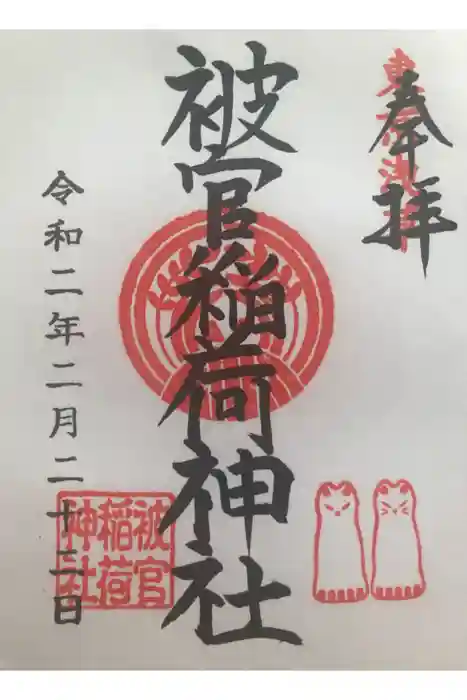 奉拝
東京浅草
被官稲荷神社
令和二年二月二十三日
被官
稲荷
神社